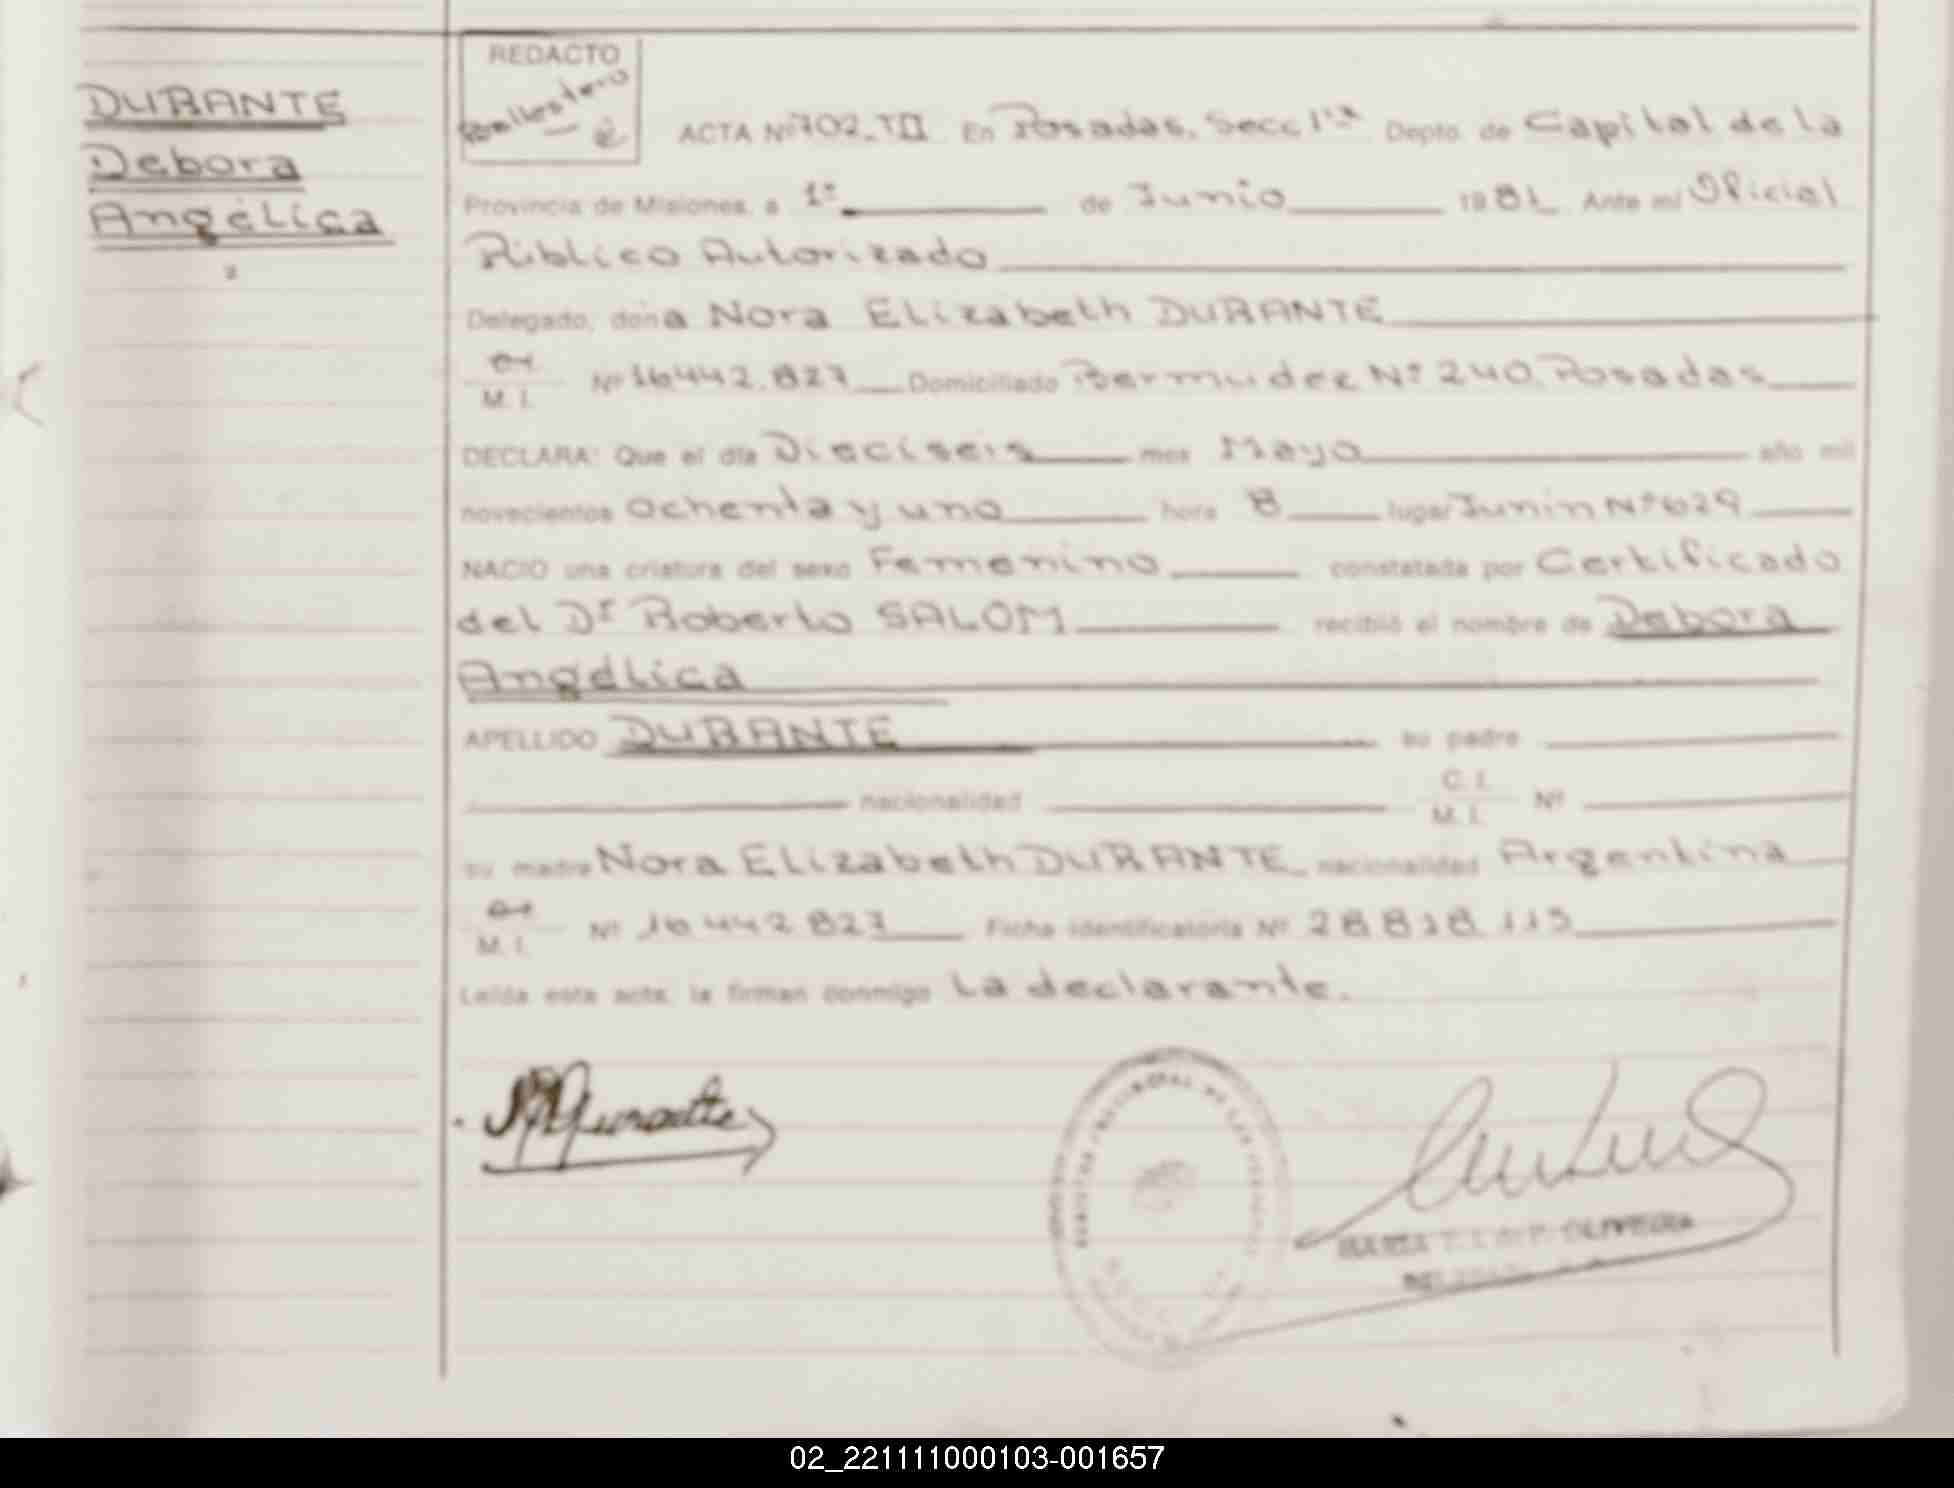 DURANTE
Debora
Angélica
REDACTO
Ballestero
ACTA Nº 702_TII En Posadas, Secc 1ra Depto. de Capital de la
Provincia de Misiones, a 1º de Junio 1981 Ante mí Oficial
Público Autorizado
Delegado, doña Nora Elizabeth DURANTE
M. I. Nº 16442.827 Domiciliado Bermudez Nº 240. Posadas
DECLARA: Que el día Dieciseis mes Mayo año mil
novecientos ochenta y uno hora 8 lugar Junin Nº 629
NACIO una criatura del sexo Femenino constatada por Certificado
del Dr Roberto SALOM recibió el nombre de Debora
Angélica
APELLIDO DURANTE su padre
nacionalidad C. I. M. I. Nº
su madre Nora Elizabeth DURANTE nacionalidad Argentina
M. I. Nº 16442827 Ficha identificatoria Nº 28818.115
Leída esta acta, la firman conmigo la declarante.
Durante
OLIVEIRA
02_221111000103-001657